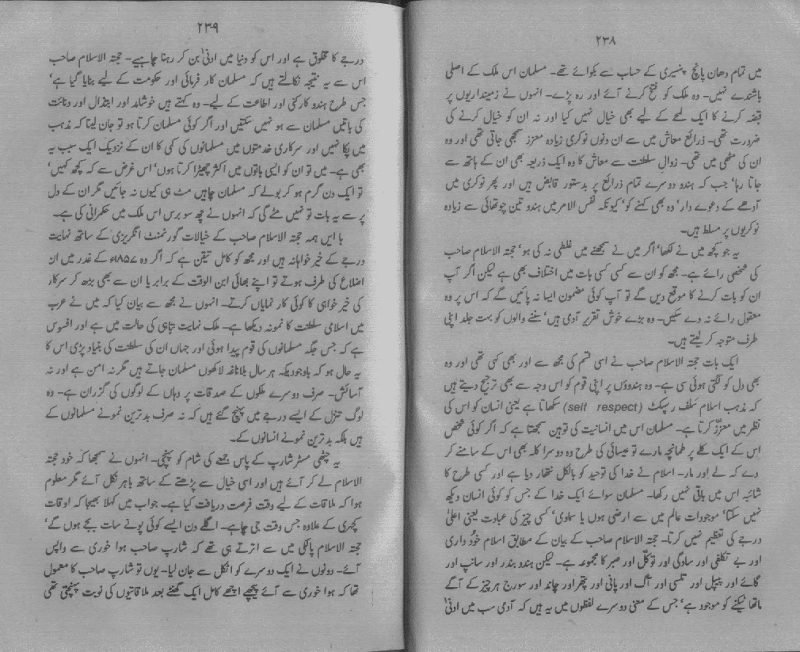 ۲۳۸
میں تمام دھان پانچ پنسیری کے حساب سے بکوائے تھے۔ مسلمان اس ملک کے اصلی
باشندے نہیں۔ وہ ملک کو فتح کرنے آئے اور رہ پڑے۔ انھوں نے زمینداریوں پر
قبضہ کرنے کا ایک لمحے کے لیے بھی خیال نہیں کیا اور نہ ان کو خیال کرنے کی
ضرورت تھی۔ ذرائع معاش میں سے ان دنوں نوکری زیادہ معزز سمجھی جاتی تھی اور وہ
ان کی مٹھی میں تھی۔ زوالِ سلطنت سے معاش کا وہ ایک ذریعہ بھی ان کے ہاتھ سے
جاتا رہا‘ جب کہ ہندو دوسرے تمام ذرائع پر بدستور قابض ہیں اور پھر نوکری میں
آدھے کے دعوے دار‘ وہ بھی کہنے کو‘ کیونکہ نفس الامر میں ہندو تین چوتھائی سے زیادہ
نوکریوں پر مسلط ہیں۔
یہ جو کچھ میں نے لکھا‘ اگر میں نے سمجھنے میں غلطی نہ کی ہو‘ حجتہ الاسلام صاحب
کی شخصی رائے ہے۔ مجھ کو ان سے کسی کسی بات میں اختلاف بھی ہے لیکن اگر آپ
ان کو بات کرنے کا موقع دیں گے تو آپ کوئی مضمون ایسا نہ پائیں گے کہ اس پر وہ
معقول رائے نہ دے سکیں۔ وہ بڑے خوش تقریر آدمی ہیں‘ سننے والوں کو بہت جلد اپنی
طرف متوجہ کر لیتے ہیں۔
ایک بات حجتہ الاسلام صاحب نے اسی قسم کی مجھ سے اور بھی کہی تھی اور وہ
بھی دل کو لگتی ہوئی سی ہے۔ وہ ہندوؤں پر اپنی قوم کو اس وجہ سے بھی ترجیح دیتے ہیں
کہ مذہب اسلام سلف رسپکٹ (self respect) سکھاتا ہے یعنی انسان کو اس کی
نظر میں معزز کرتا ہے۔ مسلمان اس میں انسانیت کی توہین سمجھتا ہے کہ اگر کوئی شخص
اس کے ایک کلے پر طمانچہ مارے تو عیسائی کی طرح وہ دوسرا کلہ بھی اس کے سامنے کر
دے کہ لے اور مار۔ اسلام نے خدا کی توحید کو بالکل نتھار دیا ہے اور کسی طرح کا
شائبہ اس میں باقی نہیں رکھا۔ مسلمان سوائے ایک خدا کے جس کو کوئی انسان دیکھ
نہیں سکتا‘ موجودات عالم میں سے ارضی ہوں یا سماوی‘ کسی چیز کی عبادت یعنی اعلیٰ
درجے کی تعظیم نہیں کرتا۔ حجتہ الاسلام صاحب کے بیان کے مطابق اسلام خود داری
اور بے تکلفی اور سادگی اور توکل اور صبر کا مجموعہ ہے۔ لیکن ہندو بندر اور سانپ اور
گائے اور پیپل اور تلسی اور آگ اور پانی اور پتھر اور چاند اور سورج ہر چیز کے آگے
ماتھا ٹیکنے کو موجود ہے‘ جس کے معنی دوسرے لفظوں میں یہ ہیں کہ آدمی سب میں ادنیٰ
۲۳۹
درجے کا مخلوق ہے اور اس کو دنیا میں ادنیٰ بن کر رہنا چاہیے۔ حجتہ الاسلام صاحب
اس سے یہ نتیجہ نکالتے ہیں کہ مسلمان کار فرمائی اور حکومت کے لیے بنایا گیا ہے‘
جس طرح ہندو کارکنی اور اطاعت کے لیے۔ وہ کہتے ہیں خوشامد اور ابتذال اور دنائت
کی باتیں مسلمان سے ہو نہیں سکتیں اور اگر کوئی مسلمان کرتا ہو تو جان لینا کہ مذہب
میں پکا نہیں اور سرکاری خدمتوں میں مسلمانوں کی کمی کا ان کے نزدیک ایک سبب یہ
بھی ہے۔ میں تو ان کو ایسی باتوں میں اکثر چھیڑا کرتا ہوں‘ اس غرض سے کہ کچھ کہیں‘
تو ایک دن گرم ہو کر بولے کہ مسلمان چاہیں مٹ ہی کیوں نہ جائیں مگر ان کے دل
پر سے یہ بات تو نہیں مٹے گی کہ انھوں نے چھ سو برس اس ملک میں حکمرانی کی ہے۔
با ایں ہمہ حجتہ الاسلام صاحب کے خیالات گورنمنٹ انگریزی کے ساتھ نہایت
درجے کے خیر خواہانہ ہیں اور مجھ کو کامل یقین ہے کہ اگر وہ ۱۸۵۷ء کے غدر میں ان
اضلاع کی طرف ہوتے تو اپنے بھائی ابن الوقت کے برابر یا ان سے بھی بڑھ کر سرکار
کی خیر خواہی کا کوئی کار نمایاں کرتے۔ انھوں نے مجھ سے بیان کیا کہ میں نے عرب
میں اسلامی سلطنت کا نمونہ دیکھا ہے۔ ملک نہایت تباہی کی حالت میں ہے اور افسوس
ہے کہ جس جگہ مسلمانوں کی قوم پیدا ہوئی اور جہاں ان کی سلطنت کی بنیاد پڑی اس کا
یہ حال ہو کہ باوجودیکہ ہر سال بلاناغہ لاکھوں مسلمان جاتے ہیں مگر نہ امن ہے اور نہ
آسائش۔ صرف دوسرے ملکوں کے صدقات پر وہاں کے لوگوں کی گزران ہے۔ وہ
لوگ تنزل کے ایسے درجے میں پہنچ گئے ہیں کہ نہ صرف بدترین نمونے مسلمانوں کے
ہیں بلکہ بدترین نمونے انسانوں کے۔
یہ چٹھی مسٹر شارپ کے پاس جمعے کی شام کو پہنچی۔ انھوں نے سمجھا کہ خود حجتہ
الاسلام لے کر آئے ہیں اور اسی خیال سے پڑھنے کے ساتھ باہر نکل آئے مگر معلوم
ہوا کہ ملاقات کے لیے وقت فرصت دریافت کیا ہے۔ جواب میں کہلا بھیجا کہ اوقات
کچہری کے علاوہ جس وقت جی چاہے۔ اگلے دن ایسے کوئی پونے سات بجے ہوں گے‘
حجتہ الاسلام پالکی میں سے اترتے ہی تھے کہ شارپ صاحب ہوا خوری سے واپس
آئے۔ دونوں نے ایک دوسرے کو اٹکل سے جان لیا۔ یوں تو شارپ صاحب کا معمول
تھا کہ ہوا خوری سے آئے پیچھے اچھے کامل ایک گھنٹے بعد ملاقاتیوں کی نوبت پہنچتی تھی